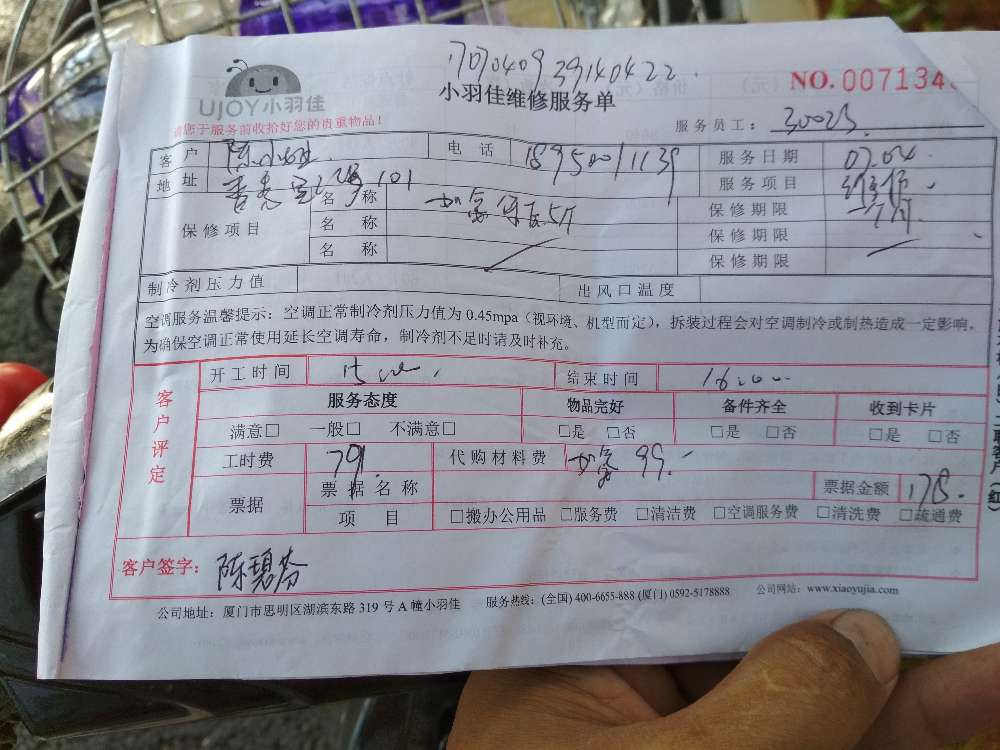 17070409 39140422
UJOY小羽佳
小羽佳维修服务单
NO. 007134
请您于服务前收拾好您的贵重物品！
服务员工：
客 户 陈 电 话 服务日期 07.04
地址 101 服务项目 维修
保修项目 名 称 保修期限 一个月
名 称 保修期限
名 称 保修期限
制冷剂压力值 出风口温度
空调服务温馨提示：空调正常制冷剂压力值为 0.45mpa（视环境、机型而定），拆装过程会对空调制冷或制热造成一定影响，
为确保空调正常使用延长空调寿命，制冷剂不足时请及时补充。
客户评定
开工时间 结束时间 16:00
服务态度 物品完好 备件齐全 收到卡片
满意□ 一般□ 不满意□ □是 □否 □是 □否 □是 □否
工时费 79 代购材料费 加氟 99
票据 票据名称 票据金额 178
项 目 □搬办公用品 □服务费 □清洁费 □空调服务费 □清洗费 □疏通费
客户签字： 陈碧芬
公司地址：厦门市思明区湖滨东路 319 号 A 幢小羽佳 服务热线：(全国) 400-6655-888 (厦门) 0592-5178888 公司网站：www.xiaoyujia.com